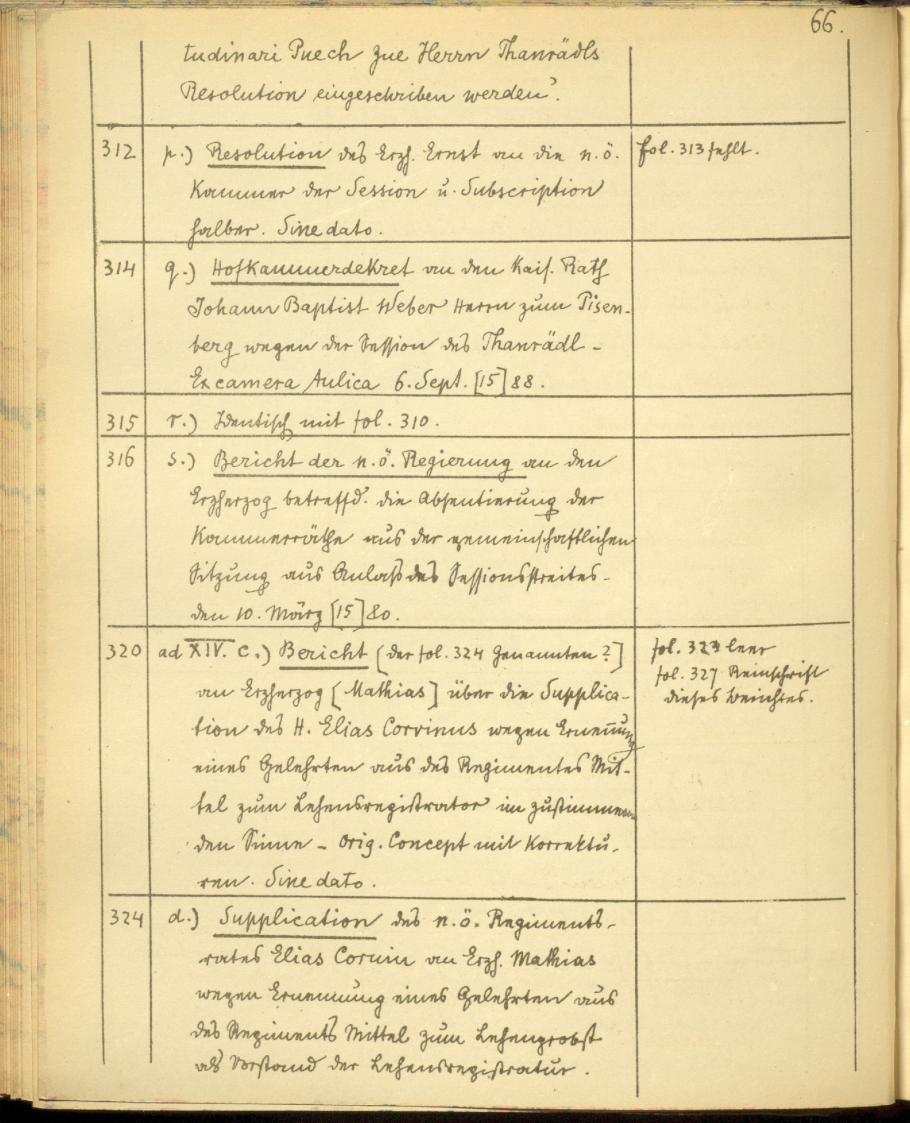 66.
tudinari Puech zue Herrn Thanrädls
Resolution eingeschriben werden'.
312 p.) Resolution des Erzh. Ernst an die n.ö. fol. 313 fehlt.
Kammer der Session u. Subscription
halber. Sine dato.
314 q.) Hofkammerdekret an den Kais. Rath
Johann Baptist Weber Herrn zum Pisen-
berg wegen der Session des Thanrädl -
Ex camera Aulica 6. Sept. [15]88.
315 r.) Identisch mit fol. 310.
316 s.) Bericht der n.ö. Regierung an den
Erzherzog betreffd. die Absentierung der
Kammerräthe aus der gemeinschaftlichen
Sitzung aus Anlass des Sessionsstreites -
den 10. März [15]80.
320 ad XIV. c.) Bericht [der fol. 324 Genannten ?] fol. 323 leer
an Erzherzog [Mathias] über die Supplica- fol. 327 Reinschrift
dieses Berichtes.
tion des H. Elias Corvinus wegen Ernennung
eines Gelehrten aus des Regimentes Mit-
tel zum Lehensregistrator im zustimmen
den Sinne - Orig. Concept mit Korrektu-
ren. Sine dato.
324 d.) Supplication des n.ö. Regiments-
rates Elias Coruin an Erzh. Mathias
wegen Ernennung eines Gelehrten aus
des Regiments Mittel zum Lehenprobst
als Vorstand der Lehensregistratur.